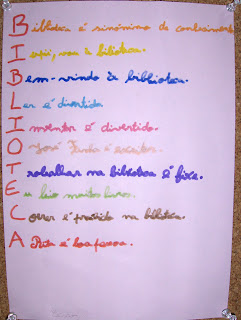 Biblioteca é sinónimo de conhecimento
Iupii, vou à biblioteca.
Bem-vindo à biblioteca.
Ler é divertido
Inventar é divertido.
O José Fanha é escritor.
Trabalhar na biblioteca é fixe.
Eu leio muitos livros.
Correr é proibido na biblioteca.
A Rita é boa pessoa.